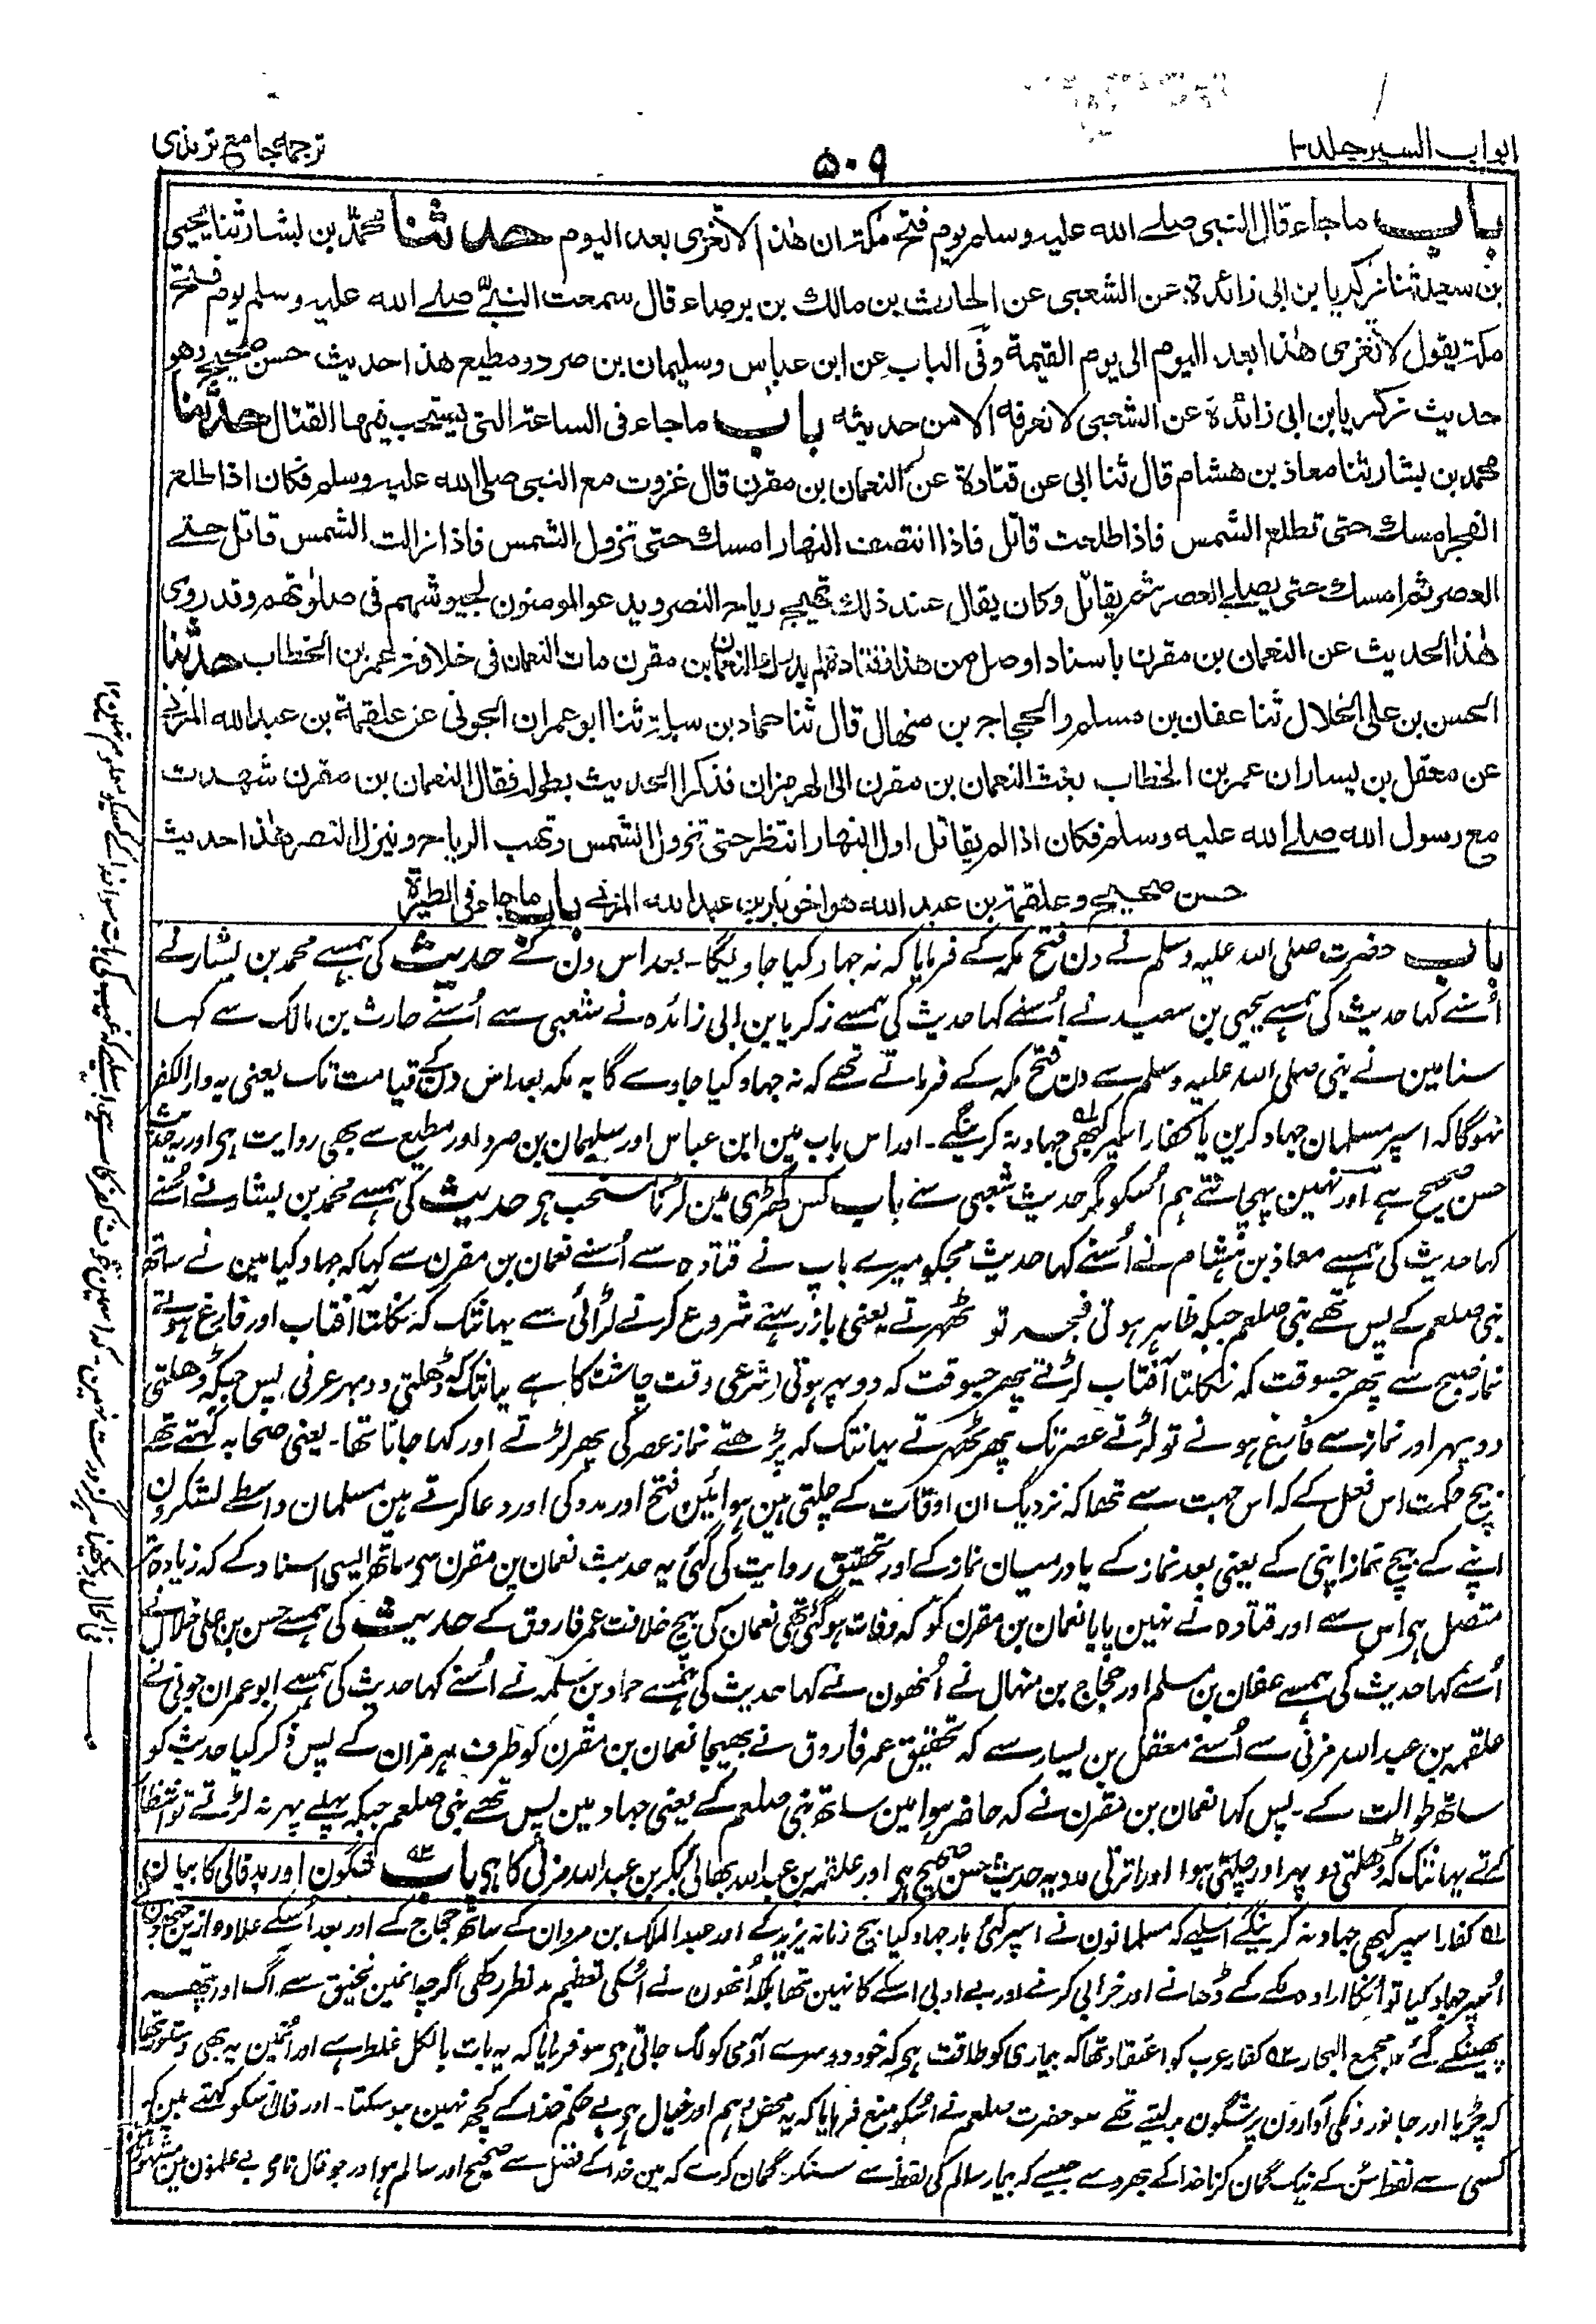 ابواب السير جلد ۱
۵۰۹
ترجمہ جامع ترمذی
باب ماجاء قال النبی صلے الله عليه وسلم يوم فتح مكة ان هذا لا تغزى بعد اليوم حدثنا محمد بن بشار ثنا يحيى
بن سعيد ثنا زكريا بن ابى زائدة عن الشعبى عن الحارث بن مالك بن برصاء قال سمعت النبى صلے الله عليه وسلم يوم فتح
مكة يقول لا تغزى هذا بعد اليوم الى يوم القيمة وفى الباب عن ابن عباس وسليمان بن صرد ومطيع هذا حديث حسن صحيح وهو
حديث زكريا بن ابى زائدة عن الشعبى لا نعرفه الا من حديثه باب ماجاء فى الساعة التى يستحب فيها القتال حدثنا
محمد بن بشار ثنا معاذ بن هشام قال ثنا ابى عن قتادة عن النعمان بن مقرن قال غزوت مع النبى صلى الله عليه وسلم فكان اذا طلع
الفجر امسك حتى تطلع الشمس فاذا طلعت قاتل فاذا انتصف النهار امسك حتى تزول الشمس فاذا زالت الشمس قاتل حتے
العصر ثم امسك حتى يصلے العصر ثم يقاتل وكان يقال عند ذلك تهيج رياح النصر ويدعو المومنون لجيوشهم فى صلوتهم وقد روى
هذا الحديث عن النعمان بن مقرن باسناد اوصل من هذا وقتادة لم يدرك النعمان بن مقرن مات النعمان فى خلافة عمر بن الخطاب حدثنا
الحسن بن على الخلال ثنا عفان بن مسلم والحجاج بن منهال قال ثنا حماد بن سلمة ثنا ابو عمران الجونى عن علقمة بن عبد الله المزنى
عن معقل بن يسار ان عمر بن الخطاب بعث النعمان بن مقرن الى الهرمزان فذكر الحديث بطوله فقال النعمان بن مقرن شهدت
مع رسول الله صلے الله عليه وسلم فكان اذا لم يقاتل اول النهار انتظر حتى تزول الشمس وتهب الرياح وينزل النصر هذا حديث
حسن صحيح وعلقمة بن عبد الله هو اخو بكر بن عبد الله المزنى باب ماجاء فى الطيرة
باب حضرت صلی اللہ علیہ وسلم نے دن فتح مکہ کے فرمایا کہ نہ جہاد کیا جاویگا۔ بعد اس دن کے حدیث کی ہمسے محمد بن بشار نے
اُسنے کہا حدیث کی ہمسے یحیی بن سعید نے اُسنے کہا حدیث کی ہمسے زکریا بن ابی زائدہ نے شعبی سے اُسنے حارث بن مالک سے کہا
سنا مین نے نبی صلی اللہ علیہ وسلم سے دن فتح مکہ کے فرماتے تھے کہ نہ جہاد کیا جاوے گا یہ مکہ بعد اس دن کے قیامت تک یعنی یہ دار الکفر
نہوگا کہ اسپر مسلمان جہاد کرین یا کفار اسپر کبھی جہاد نہ کرینگے۔ اور اس باب مین ابن عباس اور سلیمان بن صرد اور مطیع سے بھی روایت ہی اور یہ حدیث
حسن صحیح ہے اور نہین پہچانتے ہم اُسکو مگر حدیث شعبی سنے باب کس گھڑی مین لڑنا مستحب ہو حدیث کی ہمسے محمد بن بشار نے اُسنے
کہا حدیث کی ہمسے معاذ بن ہشام نے اُسنے کہا حدیث مجکو میرے باپ نے قتادہ سے اُسنے نعمان بن مقرن سے کہا کہ جہاد کیا مین نے ساتھ
نبی صلعم کے پس تھے نبی صلعم جبکہ ظاہر ہوتی فجر تو ٹھہرتے یعنی باز رہتے شروع کرنے لڑائی سے یہانتک کہ نکلتا آفتاب اور فارغ ہوتے
نماز صبح سے پھر جسوقت کہ نکلتا آفتاب لڑتے پھر جسوقت کہ دوپہر ہوتی (شرعی وقت چاشت کا ہے یہانتک کہ ڈھلتی دوپہر عرفی پس جبکہ ڈھلتی
دوپہر اور نماز سے فارغ ہوتے تو لڑتے عصر تک پھر ٹھہرتے یہانتک کہ پڑھتے نماز عصر کی پھر لڑتے اور کہا جاتا تھا۔ یعنی صحابہ کہتے تھے
بیچ حکمت اس فعل کے کہ اس جہت سے تھا کہ نزدیک ان اوقات کے چلتی ہین ہوائین فتح اور مدد کی اور دعا کرتے ہین مسلمان واسطے لشکرون
اپنے کے بیچ نماز اپنی کے یعنی بعد نماز کے یا درمیان نماز کے اور تحقیق روایت کی گئی یہ حدیث نعمان بن مقرن سی ساتھ ایسی اسناد کے کہ زیادہ تر
متصل ہی اس سے اور قتادہ نے نہین پایا نعمان بن مقرن کو کہ وفات ہوگئی تھی نعمان کی بیچ خلافت عمر فاروق کے حدیث کی ہمسے حسن بن علی خلال نے
اُسنے کہا حدیث کی ہمسے عفان بن مسلم اور حجاج بن منہال نے اُنھون نے کہا حدیث کی ہمسے حماد بن سلمہ نے اُسنے کہا حدیث کی ہمسے ابو عمران جونی نے
علقمہ بن عبد اللہ مزنی سے اُسنے معقل بن یسار سے کہ تحقیق عمر فاروق نے بھیجا نعمان بن مقرن کو طرف ہرمزان کے پس ذکر کیا حدیث کو
ساتھ طوالت کے۔ پس کہا نعمان بن مقرن نے کہ حاضر ہوا مین ساتھ نبی صلعم کے یعنی جہاد مین پس تھے نبی صلعم جبکہ پہلے پہر نہ لڑتے تو انتظار
کرتے یہانتک کہ ڈھلتی دوپہر اور چلتی ہوا اور اترتی مدد یہ حدیث حسن صحیح ہی اور علقمہ بن عبد اللہ بھائی بکر بن عبد اللہ مزنی کا ہی باب شگون اور بدفالی کا بیان
۵۱ کفار اسپر کبھی جہاد نہ کرینگے اسلیے کہ مسلمانون نے اسپر کئی بار جہاد کیا بیچ زمانہ یزید کے اور عبد الملک بن مروان کے ساتھ حجاج کے اور بعد اُسکے علاوہ ازین جنھون نے
اُسپر جہاد کیا تو اُنکا ارادہ مکے کے ڈھانے اور خرابی کرنے اور بے ادبی اسکے کا نہین تھا بلکہ اُنھون نے اُسکی تعظیم مدنظر رکھی اگرچہ انمین منجنیق سے آگ اور پتھر
پھینکے گئے ۱۲ مجمع البحار ۵۲ کفار عرب کو اعتقاد تھا کہ بیماری کو طاقت ہی کہ خود دوسرے آدمی کو لگ جاتی ہی سو فرمایا کہ یہ بات بالکل غلط ہے اور اُنمین یہ بھی دستور تھا
کہ چڑیا اور جانورونکی آوازون پر شگون لیتے تھے سو حضرت صلعم نے اُسکو منع فرمایا کہ یہ محض وہم اور خیال ہی بے حکم خدا کے کچھ نہین ہو سکتا۔ اور فال اسکو کہتے ہین کہ
کسی سے لفظ سُن کے نیک گمان کرنا خدا کے بھروسے جیسے کہ بیمار سالم کی لفظ سے سنکر گمان کرے کہ مین خدا کے فضل سے صحیح اور سالم ہوا اور جو فال نامہ بے علمون مین مشہور